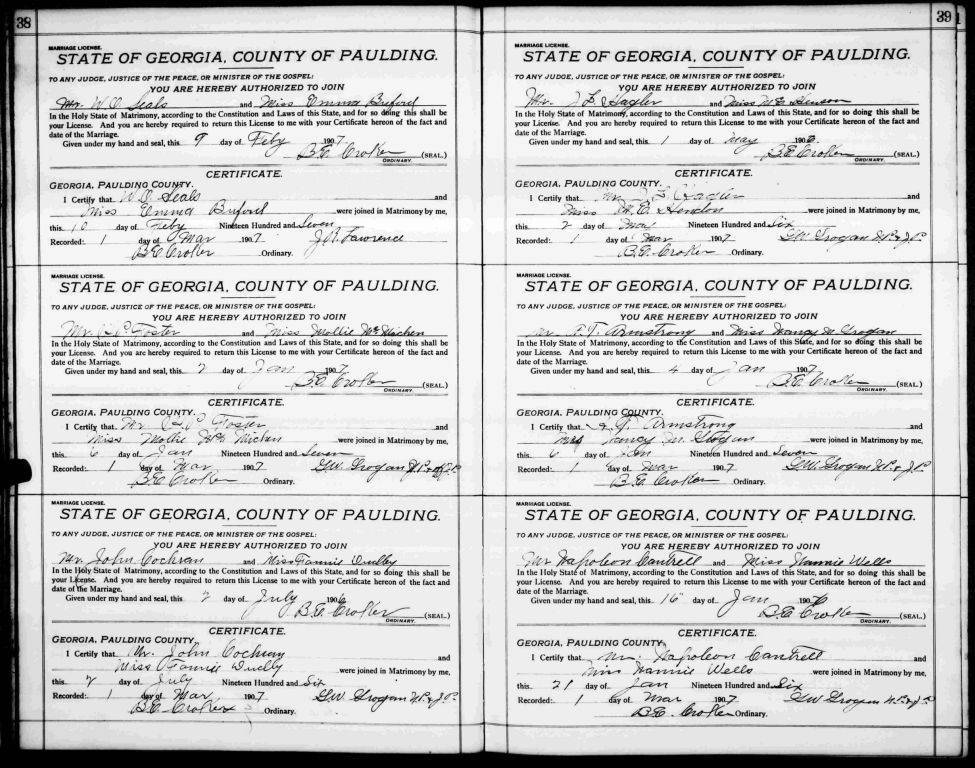 38
MARRIAGE LICENSE.
STATE OF GEORGIA, COUNTY OF PAULDING.
TO ANY JUDGE, JUSTICE OF THE PEACE, OR MINISTER OF THE GOSPEL:
YOU ARE HEREBY AUTHORIZED TO JOIN
Mr. W. O. Seals and Miss Emma Buford
In the Holy State of Matrimony, according to the Constitution and Laws of this State, and for so doing this shall be
your License. And you are hereby required to return this License to me with your Certificate hereon of the fact and
date of the Marriage.
Given under my hand and seal, this 9 day of Feby 1907.
B.E. Croker (SEAL.)
ORDINARY.
CERTIFICATE.
GEORGIA, PAULDING COUNTY.
I Certify that W. O. Seals and
Miss Emma Buford were joined in Matrimony by me,
this 10 day of Feby Nineteen Hundred and Seven
Recorded: 1 day of Mar 1907 J.R. Lawrence
B.E. Croker Ordinary.
MARRIAGE LICENSE.
STATE OF GEORGIA, COUNTY OF PAULDING.
TO ANY JUDGE, JUSTICE OF THE PEACE, OR MINISTER OF THE GOSPEL:
YOU ARE HEREBY AUTHORIZED TO JOIN
Mr. P. Foster and Miss Mollie McMichen
In the Holy State of Matrimony, according to the Constitution and Laws of this State, and for so doing this shall be
your License. And you are hereby required to return this License to me with your Certificate hereof of the fact and
date of the Marriage.
Given under my hand and seal, this 2 day of Jan 1907
B.E. Croker (SEAL.)
ORDINARY.
CERTIFICATE.
GEORGIA, PAULDING COUNTY.
I Certify that Mr P Foster and
Miss Mollie McMichen were joined in Matrimony by me,
this 6 day of Jan Nineteen Hundred and Seven
Recorded: 1 day of Mar 1907 G.W. Grogan N.P. & J.P.
B.E. Croker Ordinary.
MARRIAGE LICENSE.
STATE OF GEORGIA, COUNTY OF PAULDING.
TO ANY JUDGE, JUSTICE OF THE PEACE, OR MINISTER OF THE GOSPEL:
YOU ARE HEREBY AUTHORIZED TO JOIN
Mr. John Cochran and Miss Fannie Dudly
In the Holy State of Matrimony, according to the Constitution and Laws of this State, and for so doing this shall be
your License. And you are hereby required to return this License to me with your Certificate hereof of the fact and
date of the Marriage.
Given under my hand and seal, this 2 day of July 1906
B.E. Croker (SEAL.)
ORDINARY.
CERTIFICATE.
GEORGIA, PAULDING COUNTY.
I Certify that Mr. John Cochran and
Miss Fannie Dudly were joined in Matrimony by me,
this 2 day of July Nineteen Hundred and Six
Recorded: 1 day of Mar 1907 G.W. Grogan N.P. & J.P.
B.E. Croker Ordinary.
39
MARRIAGE LICENSE.
STATE OF GEORGIA, COUNTY OF PAULDING.
TO ANY JUDGE, JUSTICE OF THE PEACE, OR MINISTER OF THE GOSPEL:
YOU ARE HEREBY AUTHORIZED TO JOIN
Mr. J L Hagler and Miss M. E. Henson
In the Holy State of Matrimony, according to the Constitution and Laws of this State, and for so doing this shall be
your License. And you are hereby required to return this License to me with your Certificate hereof of the fact and
date of the Marriage.
Given under my hand and seal, this 1 day of May 1906
B.E. Croker (SEAL.)
ORDINARY.
CERTIFICATE.
GEORGIA, PAULDING COUNTY.
I Certify that Mr. J L Hagler and
Miss M. E. Hendon were joined in Matrimony by me,
this 2 day of May Nineteen Hundred and Six
Recorded: 1 day of Mar 1907 G.W. Grogan N.P. & J.P.
B.E. Croker Ordinary.
MARRIAGE LICENSE.
STATE OF GEORGIA, COUNTY OF PAULDING.
TO ANY JUDGE, JUSTICE OF THE PEACE, OR MINISTER OF THE GOSPEL:
YOU ARE HEREBY AUTHORIZED TO JOIN
Mr. T. Armstrong and Miss Nancy M. Grogan
In the Holy State of Matrimony, according to the Constitution and Laws of this State, and for so doing this shall be
your License. And you are hereby required to return this License to me with your Certificate hereof of the fact and
date of the Marriage.
Given under my hand and seal, this 4 day of Jan 1907
B.E. Croker (SEAL.)
ORDINARY.
CERTIFICATE.
GEORGIA, PAULDING COUNTY.
I Certify that T. Armstrong and
Miss Nancy M. Grogan were joined in Matrimony by me,
this 6 day of Jan Nineteen Hundred and Seven
Recorded: 1 day of Mar 1907 G.W. Grogan N.P. & J.P.
B.E. Croker Ordinary.
MARRIAGE LICENSE.
STATE OF GEORGIA, COUNTY OF PAULDING.
TO ANY JUDGE, JUSTICE OF THE PEACE, OR MINISTER OF THE GOSPEL:
YOU ARE HEREBY AUTHORIZED TO JOIN
Mr Napoleon Cantrell and Miss Nannie Wells
In the Holy State of Matrimony, according to the Constitution and Laws of this State, and for so doing this shall be
your License. And you are hereby required to return this License to me with your Certificate hereof of the fact and
date of the Marriage.
Given under my hand and seal, this 16 day of Jan 1906
B.E. Croker (SEAL.)
ORDINARY.
CERTIFICATE.
GEORGIA, PAULDING COUNTY.
I Certify that Mr. Napoleon Cantrell and
Miss Nannie Wells were joined in Matrimony by me,
this 21 day of Jan Nineteen Hundred and Six
Recorded: 1 day of Mar 1907 G.W. Grogan N.P. & J.P.
B.E. Croker Ordinary.